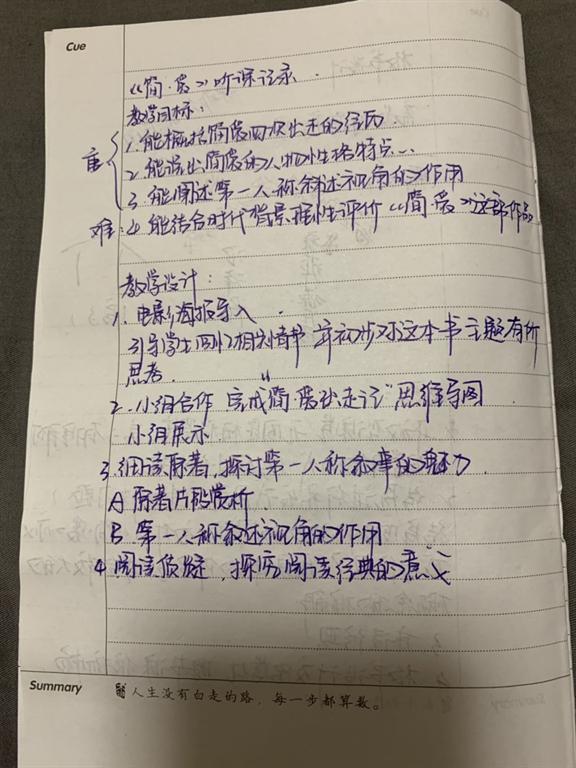 Cue
《简·爱》听课记录.
教学目标:
重 1.能概括简爱四次出走的经历
2.能说出简爱的人物性格特点
3.能阐述第一人称叙述视角的作用
难:4.能结合时代背景,理性评价《简·爱》这部作品
教学设计:
1.电影海报导入.
引导学生回忆相关情节,并初步对这本书主题有所
思考.
2.小组合作 完成"简爱出走记"思维导图
小组展示.
3.细读原著,探讨第一人称叙事的魅力.
A 原著片段赏析
B.第一人称叙述视角的作用
4.阅读质疑,探究阅读经典的意义
Summary
人生没有白走的路,每一步都算数。